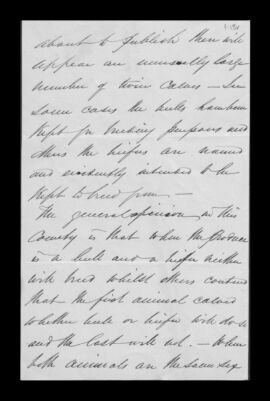 about to publish there will
appear an unusually large
number of twin calves – In
some cases the bulls have been
kept for breeding purposes and
others the heifers are named
and evidently intended to be
kept to breed from. –
The general opinion in this
County is that when the Produce
is a bull and a heifer neither
will breed whilst others contend
that the first animal calved
whether bull or heifer will do so
and the last will not. – When
both animals are the same sex